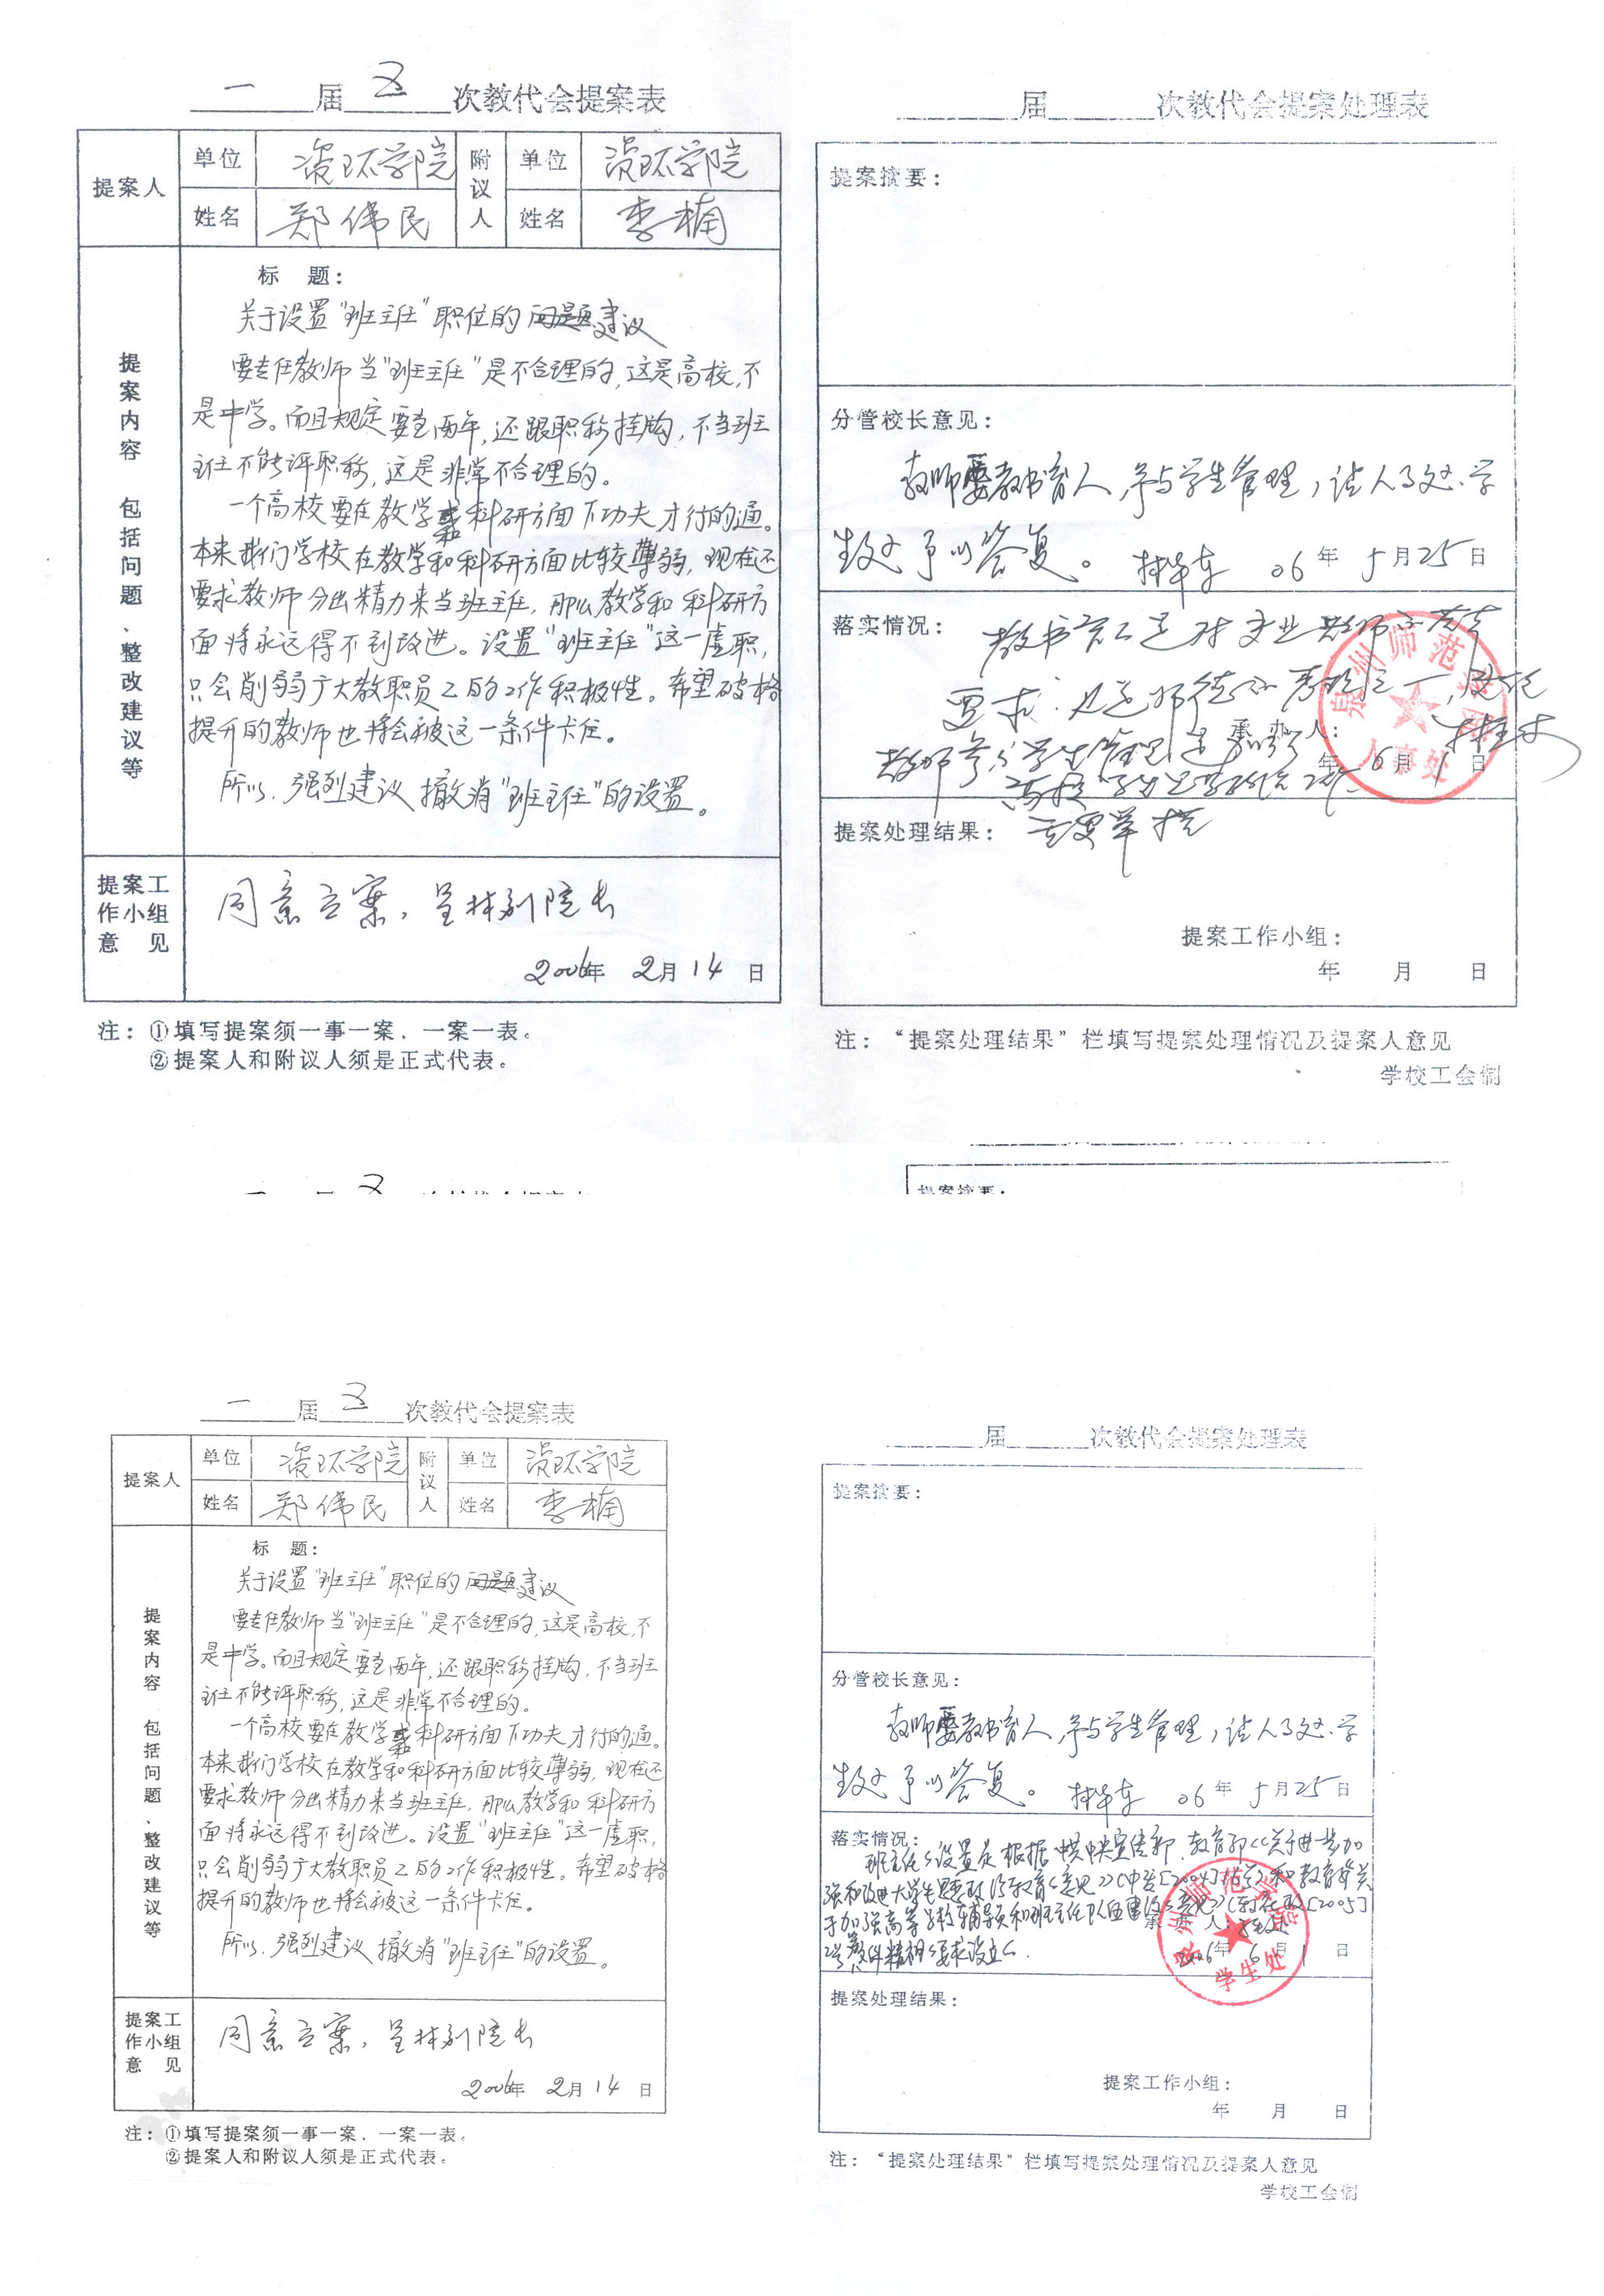 一 届 五 次教代会提案表
提案人 单位 资环学院 附议人 单位 资环学院
姓名 郑伟民 姓名 李楠
提案内容 包括问题、整改建议等
标 题：
关于设置“班主任”职位的问题建议
要专任教师当“班主任”是不合理的，这是高校，不
是中学。而且规定要当两年，还跟职称挂购，不当班
主任不能评职称，这是非常不合理的。
一个高校要在教学和科研方面下功夫才行的通。
本来我们学校在教学和科研方面比较薄弱，现在还
要求教师分出精力来当班主任，那么教学和科研方
面将永远得不到改进。设置“班主任”这一虚职，
只会削弱广大教职员工的工作积极性。希望破格
提升的教师也将会被这一条件卡住。
所以，强烈建议撤消“班主任”的设置。
提案工作小组意见
同意立案，呈林副院长
2006年 2月14 日
注：①填写提案须一事一案、一案一表。
②提案人和附议人须是正式代表。
届 次教代会提案处理表
提案摘要：
分管校长意见：
教师要教书育人，参与学生管理，请人事处、学
生处予以答复。 林华东 06 年 5月25 日
落实情况：
教书育人是对专业教师的
要求，也是师德的
教师参与学生管理是
承办人：
年 6月 1 日
泉州师范学院
人事处
提案处理结果：
提案工作小组：
年 月 日
注：“提案处理结果”栏填写提案处理情况及提案人意见
学校工会制
届 五
提案摘要：
一 届 五 次教代会提案表
提案人 单位 资环学院 附议人 单位 资环学院
姓名 郑伟民 姓名 李楠
提案内容 包括问题、整改建议等
标 题：
关于设置“班主任”职位的问题建议
要专任教师当“班主任”是不合理的，这是高校，不
是中学。而且规定要当两年，还跟职称挂购，不当班
主任不能评职称，这是非常不合理的。
一个高校要在教学和科研方面下功夫才行的通。
本来我们学校在教学和科研方面比较薄弱，现在还
要求教师分出精力来当班主任，那么教学和科研方
面将永远得不到改进。设置“班主任”这一虚职，
只会削弱广大教职员工的工作积极性。希望破格
提升的教师也将会被这一条件卡住。
所以，强烈建议撤消“班主任”的设置。
提案工作小组意见
同意立案，呈林副院长
2006年 2月14 日
注：①填写提案须一事一案、一案一表。
②提案人和附议人须是正式代表。
届 次教代会提案处理表
提案摘要：
分管校长意见：
教师要教书育人，参与学生管理，请人事处、学
生处予以答复。 林华东 06 年 5月25 日
落实情况：
班主任的设置是根据中共中央宣传部、教育部《关于进一步加
强和改进大学生思想政治教育的意见》(中发[2004]16号)和教育部关
于加强高等学校辅导员和班主任队伍建设的意见》(教社政[2005]
2号)文件精神的要求设立的。
承办人：
2006年 6 月 1 日
泉州师范学院
学生处
提案处理结果：
提案工作小组：
年 月 日
注：“提案处理结果”栏填写提案处理情况及提案人意见
学校工会制